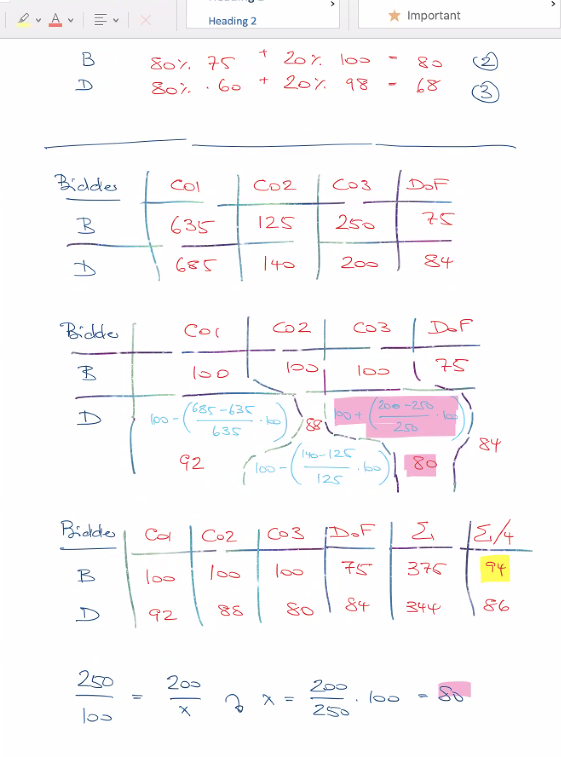 Heading 2
Important
B 80%. 75 + 20%. 100 = 80 (2)
D 80%. 60 + 20%. 98 = 68 (3)
Bidder CO1 CO2 CO3 DOF
B 635 125 250 75
D 685 140 200 84
Bidder CO1 CO2 CO3 DOF
B 100 100 100 75
D 100 - (685-635/635 · 100) 88 100 + (200-250/250 · 100) 84
92 100 - (140-125/125 · 100) 80
Bidder CO1 CO2 CO3 DOF Σ Σ/4
B 100 100 100 75 375 94
D 92 88 80 84 344 86
250/100 = 200/x x = 200/250 · 100 = 80